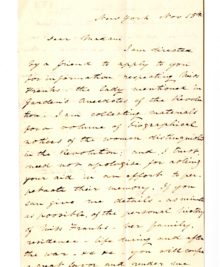 New York Nov 15th
Dear Madam
I am directed
by a friend to apply to you
for information respecting Miss
Franks - the lady mentioned in
Garden's Anecdotes of the Revolu-
tion. I am collecting materials
for a volume of biographical
notices of the women distinguished
in the Revolution; and I trust
need not apologise for asking
your aid in an effort to per-
petuate their memory. If you
can give me details - as minute
as possible, of the personal history
of Miss Franks - her family,
residence - life during and after
the war - &c &c - you will confer
a great favor and under me